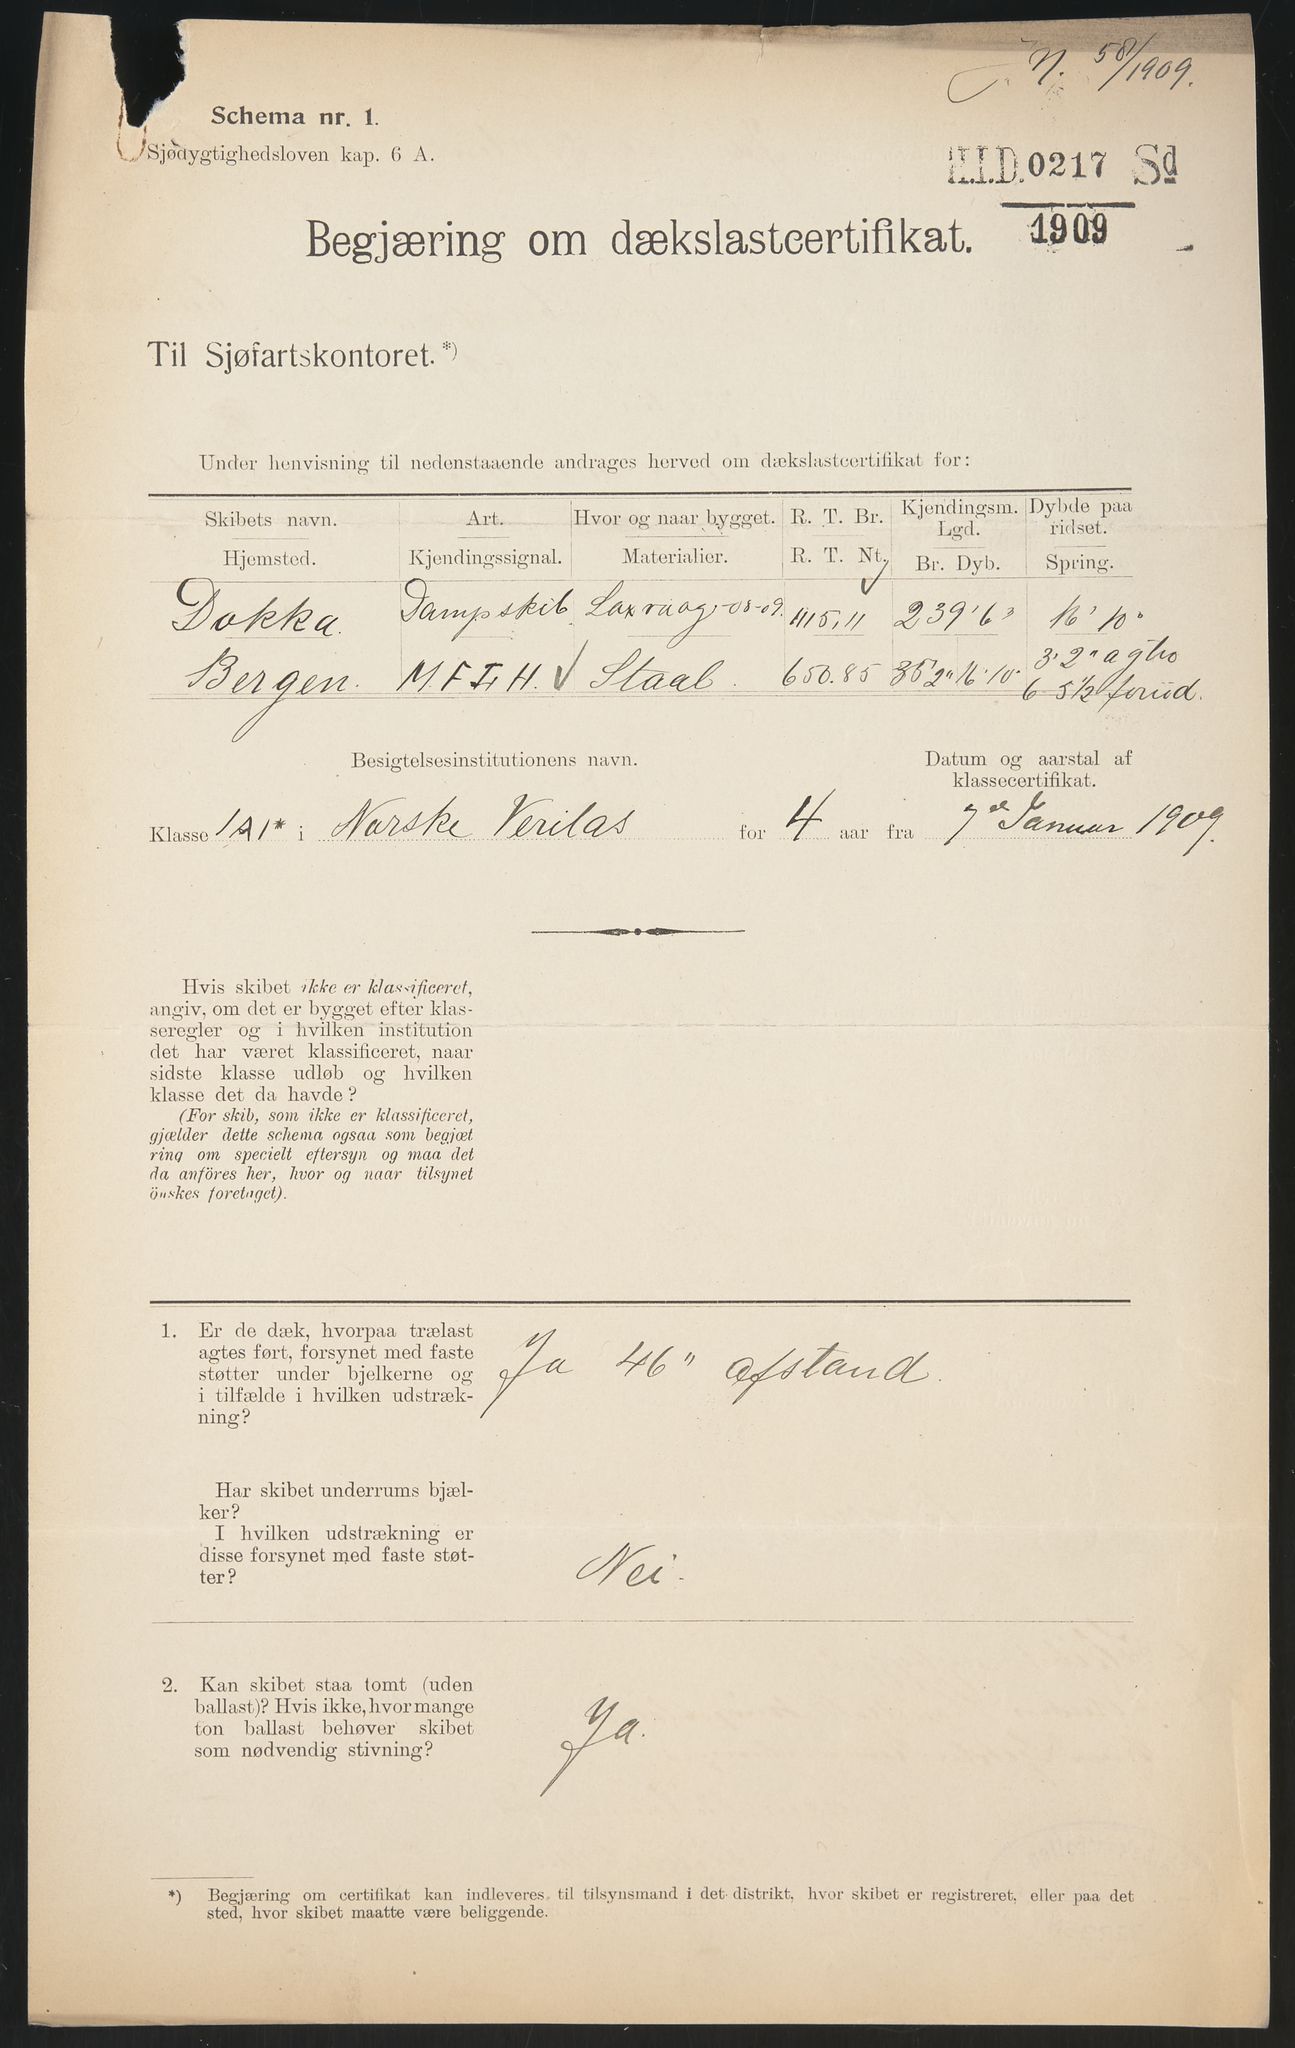 N. 58/1909.
Schema nr. 1.
Sjødygtighedsloven kap. 6 A.
H.I.D. 0217 Sd
1909
Begjæring om dækslastcertifikat.
Til Sjøfartskontoret.*)
Under henvisning til nedenstaaende andrages herved om dækslastcertifikat for:
Skibets navn. Art. Hvor og naar bygget. R. T. Br. Kjendingsm. Lgd. Dybde paa ridset.
Hjemsted. Kjendingssignal. Materialier. R. T. Nt. Br. Dyb. Spring.
Dokka. Dampskib. Laxevaag -08-09. 1115,11 239' 6" 16' 10"
Bergen. M.F.T.H. Staal. 650.85 35' 2" 16' 10" 3' 2" agter
6 5 1/2 forud.
Besigtelsesinstitutionens navn. Datum og aarstal af
klassecertifikat.
Klasse 1A1* i Norske Veritas for 4 aar fra 7de Januar 1909.
Hvis skibet ikke er klassificeret,
angiv, om det er bygget efter klas-
seregler og i hvilken institution
det har været klassificeret, naar
sidste klasse udløb og hvilken
klasse det da havde?
(For skib, som ikke er klassificeret,
gjælder dette schema ogsaa som begjæt
ring om specielt eftersyn og maa det
da anföres her, hvor og naar tilsynet
önskes foretaget).
1. Er de dæk, hvorpaa trælast
agtes ført, forsynet med faste
støtter under bjelkerne og
i tilfælde i hvilken udstræk-
ning?
Ja 46" afstand.
Har skibet underrums bjæl-
ker?
I hvilken udstrækning er
disse forsynet med faste støt-
ter?
Nei.
2. Kan skibet staa tomt (uden
ballast)? Hvis ikke, hvor mange
ton ballast behøver skibet
som nødvendig stivning?
Ja.
*) Begjæring om certifikat kan indleveres til tilsynsmand i det distrikt, hvor skibet er registreret, eller paa det
sted, hvor skibet maatte være beliggende.